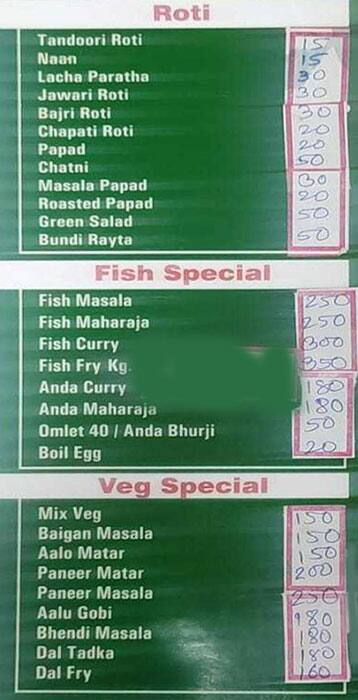 Roti
Tandoori Roti 15
Naan 15
Lacha Paratha 30
Jawari Roti 30
Bajri Roti 30
Chapati Roti 20
Papad 20
Chatni 50
Masala Papad 30
Roasted Papad 20
Green Salad 50
Bundi Rayta 50
Fish Special
Fish Masala 250
Fish Maharaja 250
Fish Curry 300
Fish Fry Kg. 350
Anda Curry 180
Anda Maharaja 180
Omlet 40 / Anda Bhurji 50
Boil Egg 20
Veg Special
Mix Veg 150
Baigan Masala 150
Aalo Matar 150
Paneer Matar 200
Paneer Masala 250
Aalu Gobi 180
Bhendi Masala 180
Dal Tadka 180
Dal Fry 160